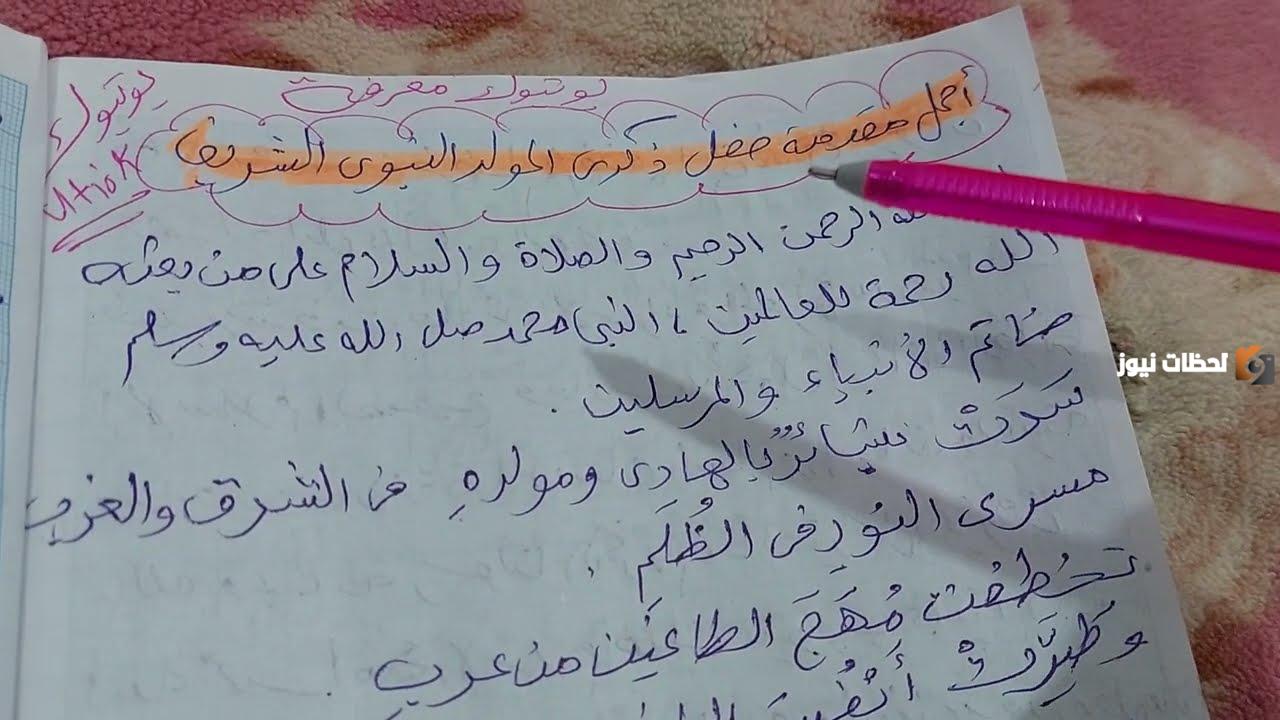 يوتيوك معرفة
يوتيوك
Utiok
أجمل مقدمة حفل ذكرى المولد النبوى الشريف
الله الرحمن الرحيم والصلاة والسلام على من بعثه
الله رحمة للعالمين ، النبى محمد صل الله عليه وسلم
خاتم الأنبياء والمرسلين .
سَرَتْ بشائرُ بالهادِى ومولدهِ فى الشرق والغرب
مسرى النورِ فى الظُلَمِ .
تخطفت مُهَجَ الطاغين من عرب
وطَيرَّت أنْفُس
لحظات نيوز